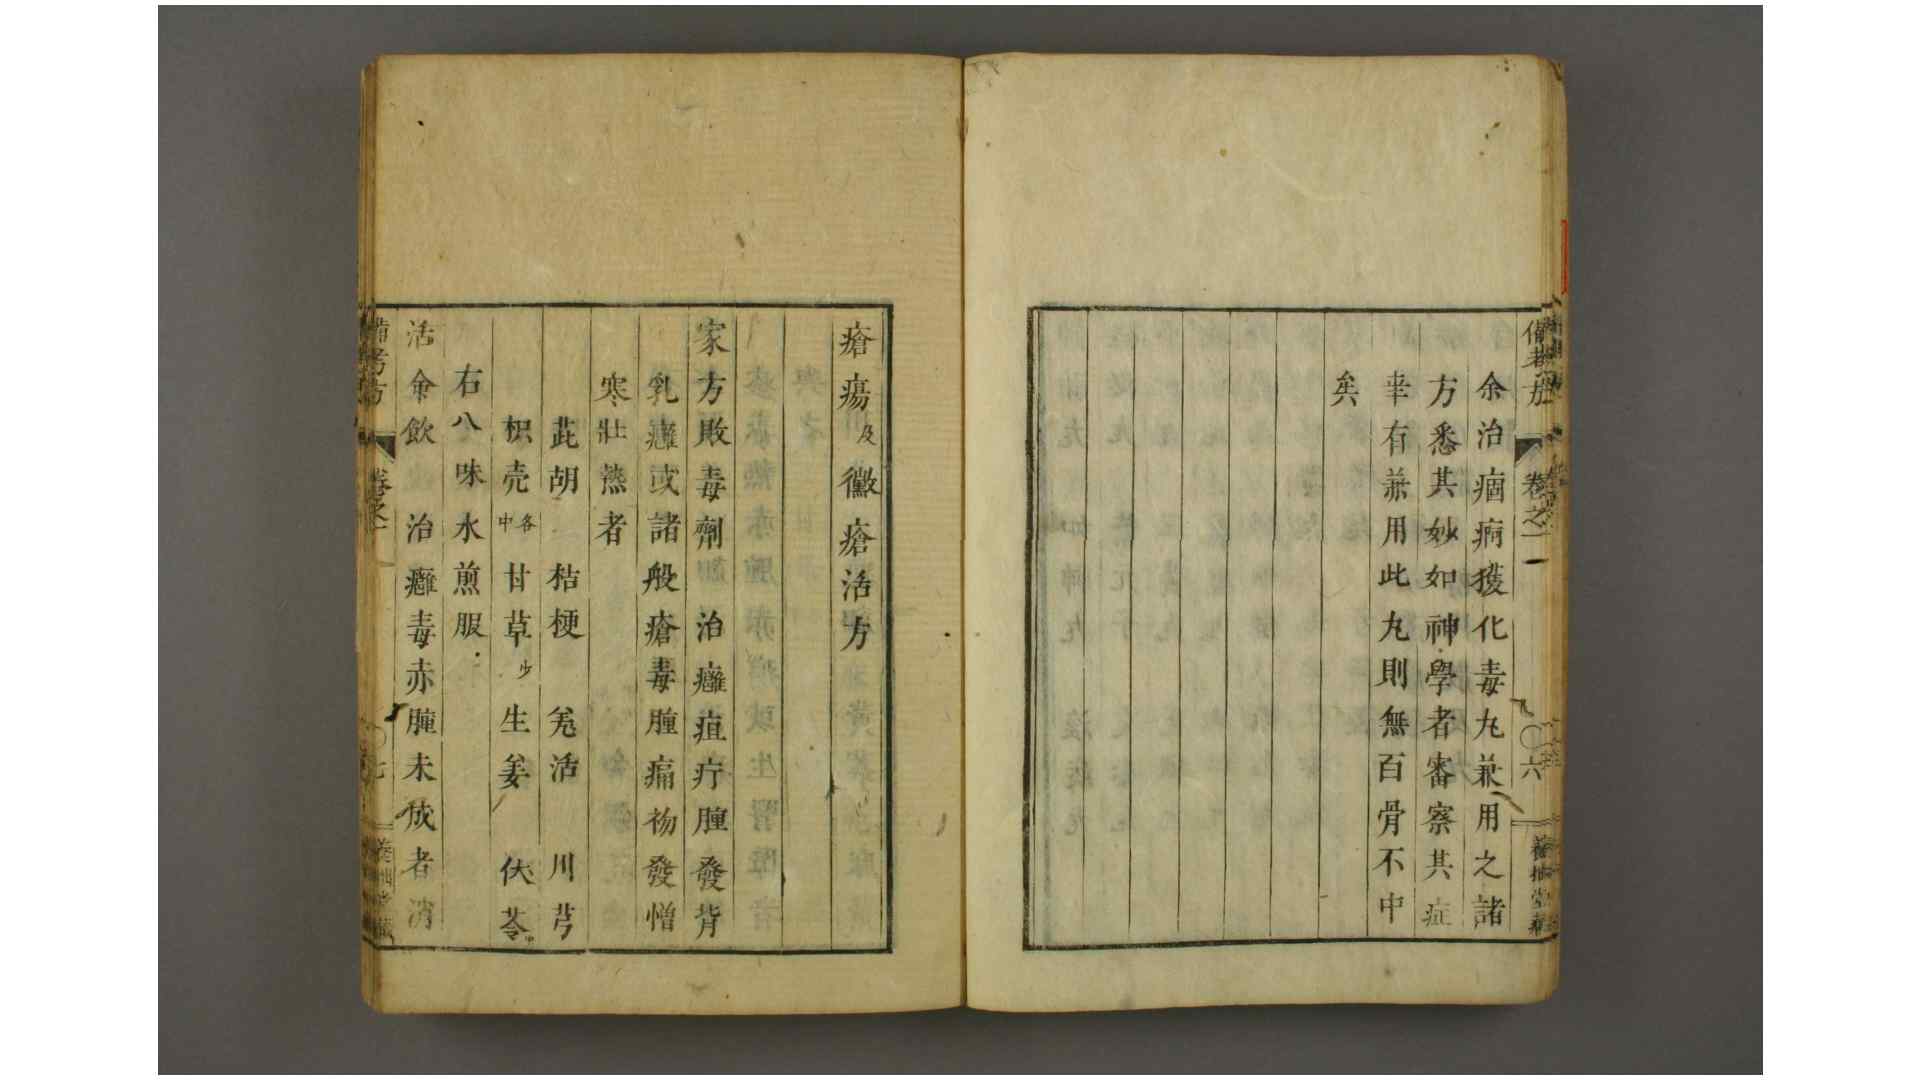 備考方 卷之一 〇六
余治痼病獲化毒丸兼用之諸
方悉其妙如神學者審察其症
幸有兼用此丸則無百骨不中
矣
瘡瘍及黴瘡活方
家方敗毒劑 治癰疽疔腫發背
乳癰或諸般瘡毒腫痛初發憎
寒壯熱者
茈胡 桔梗 羗活 川芎 伏苓中
枳壳各中 甘草少 生姜
右八味水煎服
活命飲 治癰毒赤腫未成者消
備考方 卷之一 〇七